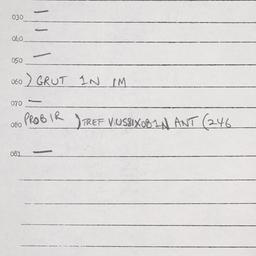 030 —
040 —
050 —
060 ) GRUT IN IM
070 —
080 PROBIR ) TREF ANT (246
081 —